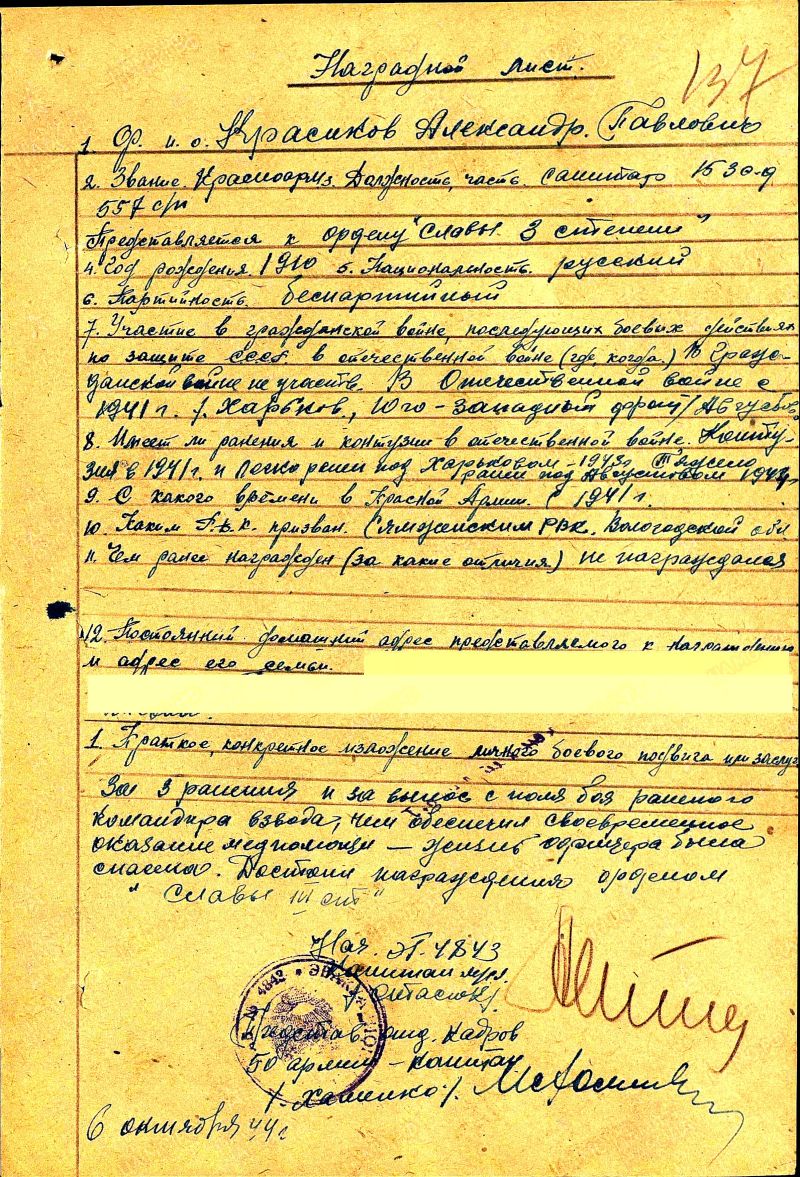 Наградной лист.
137
1 Ф. и. о. Красиков Александр Павлович
2. Звание. Красноарм. Должность, часть. санитар 153 с.д
557 с/п
Представляется к ордену "Славы 3 степени"
4. Год рождения 1910 5. Национальность. русский
6. Партийность. беспартийный
7. Участие в гражданской войне, последующих боевых действиях
по защите СССР. в отечественной войне (где, когда.) В Граж-
данской войне не участв. В Отечественной войне с
1941 г. /. Харьков, Юго-Западный фронт/
8. Имеет ли ранения и контузии в отечественной войне. Конту-
зия в 1941 г. и легко ранен под Харьковом - 1943г Тяжело
ранен под
9. С какого времени в Красной Армии. С 1941 г.
10. Каким Р.в.к. призван. РВК. Вологодской обл
11. Чем ранее награжден (за какие отличия.) не награждался
12. Постоянный домашний адрес представляемого к награждению
и адрес его семьи.
1. Краткое, конкретное изложение личного боевого подвига или заслуг
За 3 ранения и за вынос с поля боя раненого
командира взвода, чем обеспечил своевременное
оказание медпомощи — жизнь офицера была
спасена. Достоин награждения орденом
"Славы III ст"
Нач. ЭП. 4843
Капитан
Представ. отд. кадров
50 армии - Капитан
/. Хаменко /.
6 октября 44 г